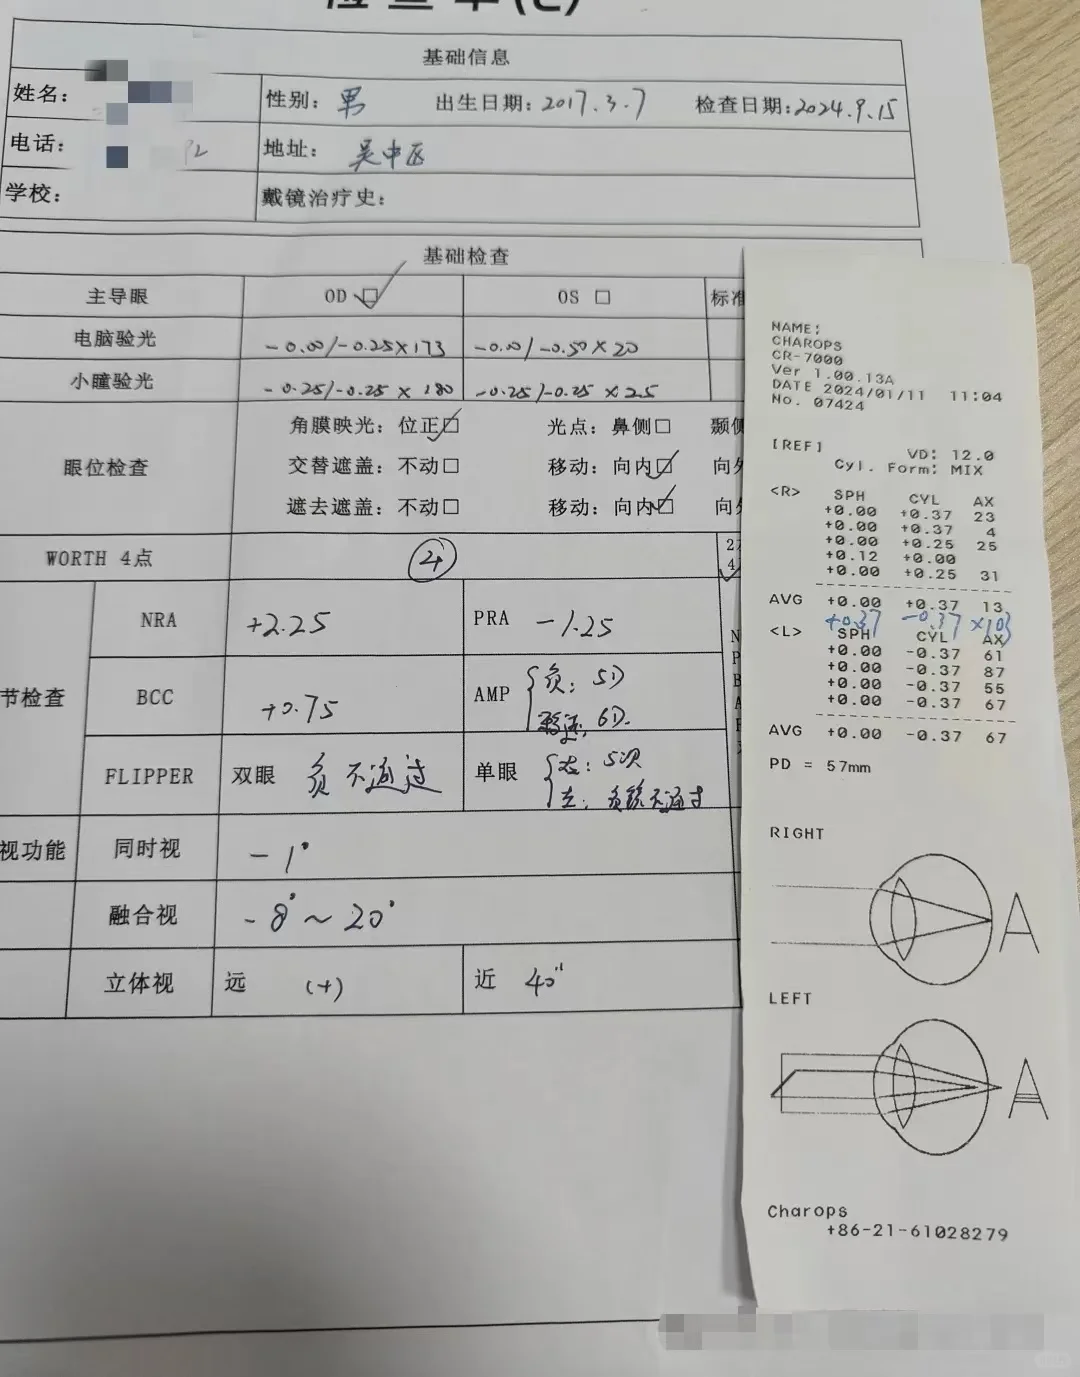 检查单(C)
基础信息
姓名：
性别：男 出生日期：2017.3.7 检查日期：2024.9.15
电话：
地址：吴中区
学校：
戴镜治疗史：
基础检查
主导眼 OD ☑ OS □ 标准
电脑验光 -0.00/-0.25×173 -0.00/-0.50×20
小瞳验光 -0.25/-0.25×180 -0.25/-0.25×25
眼位检查
角膜映光：位正☑ 光点：鼻侧□ 颞侧
交替遮盖：不动□ 移动：向内☑ 向外
遮去遮盖：不动□ 移动：向内☑ 向外
WORTH 4点 ④
节检查
NRA +2.25 PRA -1.25
BCC +0.75 AMP 负：5D
移近：6D.
FLIPPER 双眼 负不通过 单眼 右：5次
左：负镜不通过
视功能 同时视 -1°
融合视 -8°～20°
立体视 远 (+) 近 40"
NAME:
CHAROPS
CR-7000
Ver 1.00.13A
DATE 2024/01/11 11:04
No. 07424
[REF] VD: 12.0
Cyl. Form: MIX
<R> SPH CYL AX
+0.00 +0.37 23
+0.00 +0.37 4
+0.00 +0.25 25
+0.12 +0.00
+0.00 +0.25 31
AVG +0.00 +0.37 13
+0.37 -0.37 ×103
<L> SPH CYL AX
+0.00 -0.37 61
+0.00 -0.37 87
+0.00 -0.37 55
+0.00 -0.37 67
AVG +0.00 -0.37 67
PD = 57mm
RIGHT
A
LEFT
A
Charops
+86-21-61028279